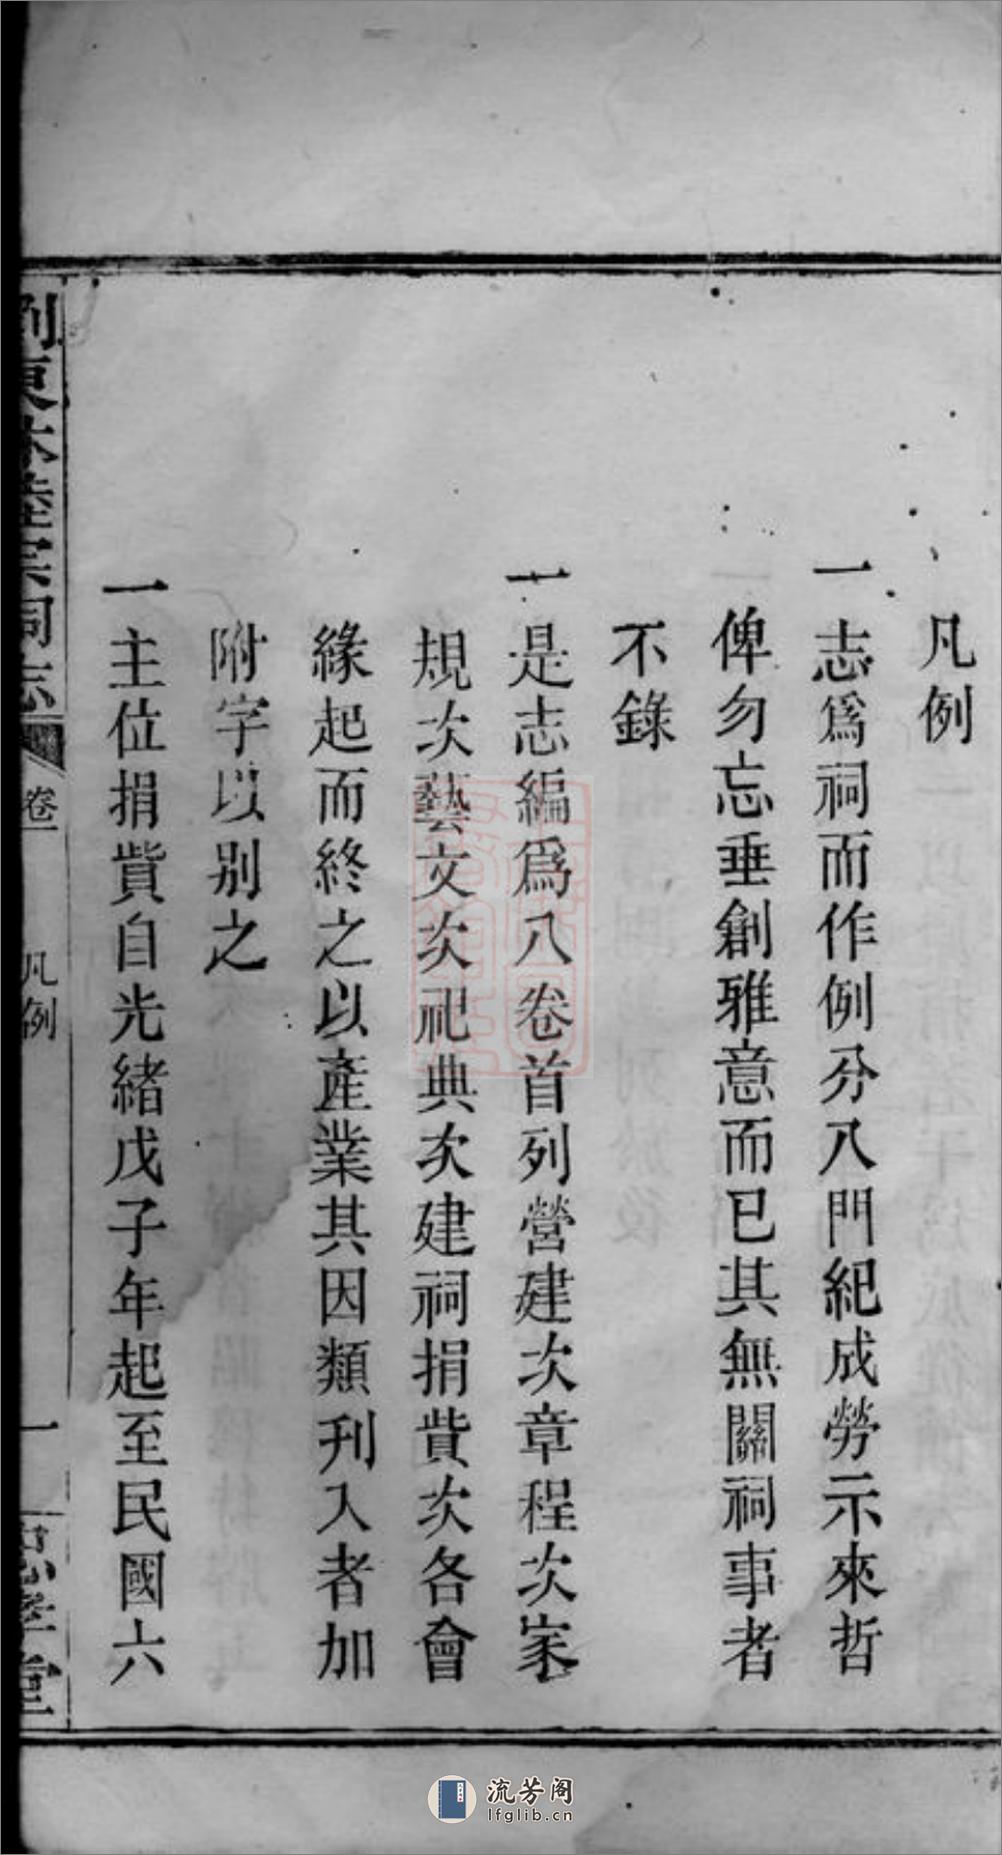 凡例
一志爲祠而作例分八門紀成勞示來哲
俾勿忘垂創雅意而已其無關祠事者
不錄
一是志編爲八卷首列營建次章程次家
規次藝文次祀典次建祠捐貲次各會
緣起而終之以產業其因類刋入者加
附字以别之
一主位捐貲自光緒戊子年起至民國六
宗祠志
卷一
凡例
一
堂
流芳阁
lfglib.cn